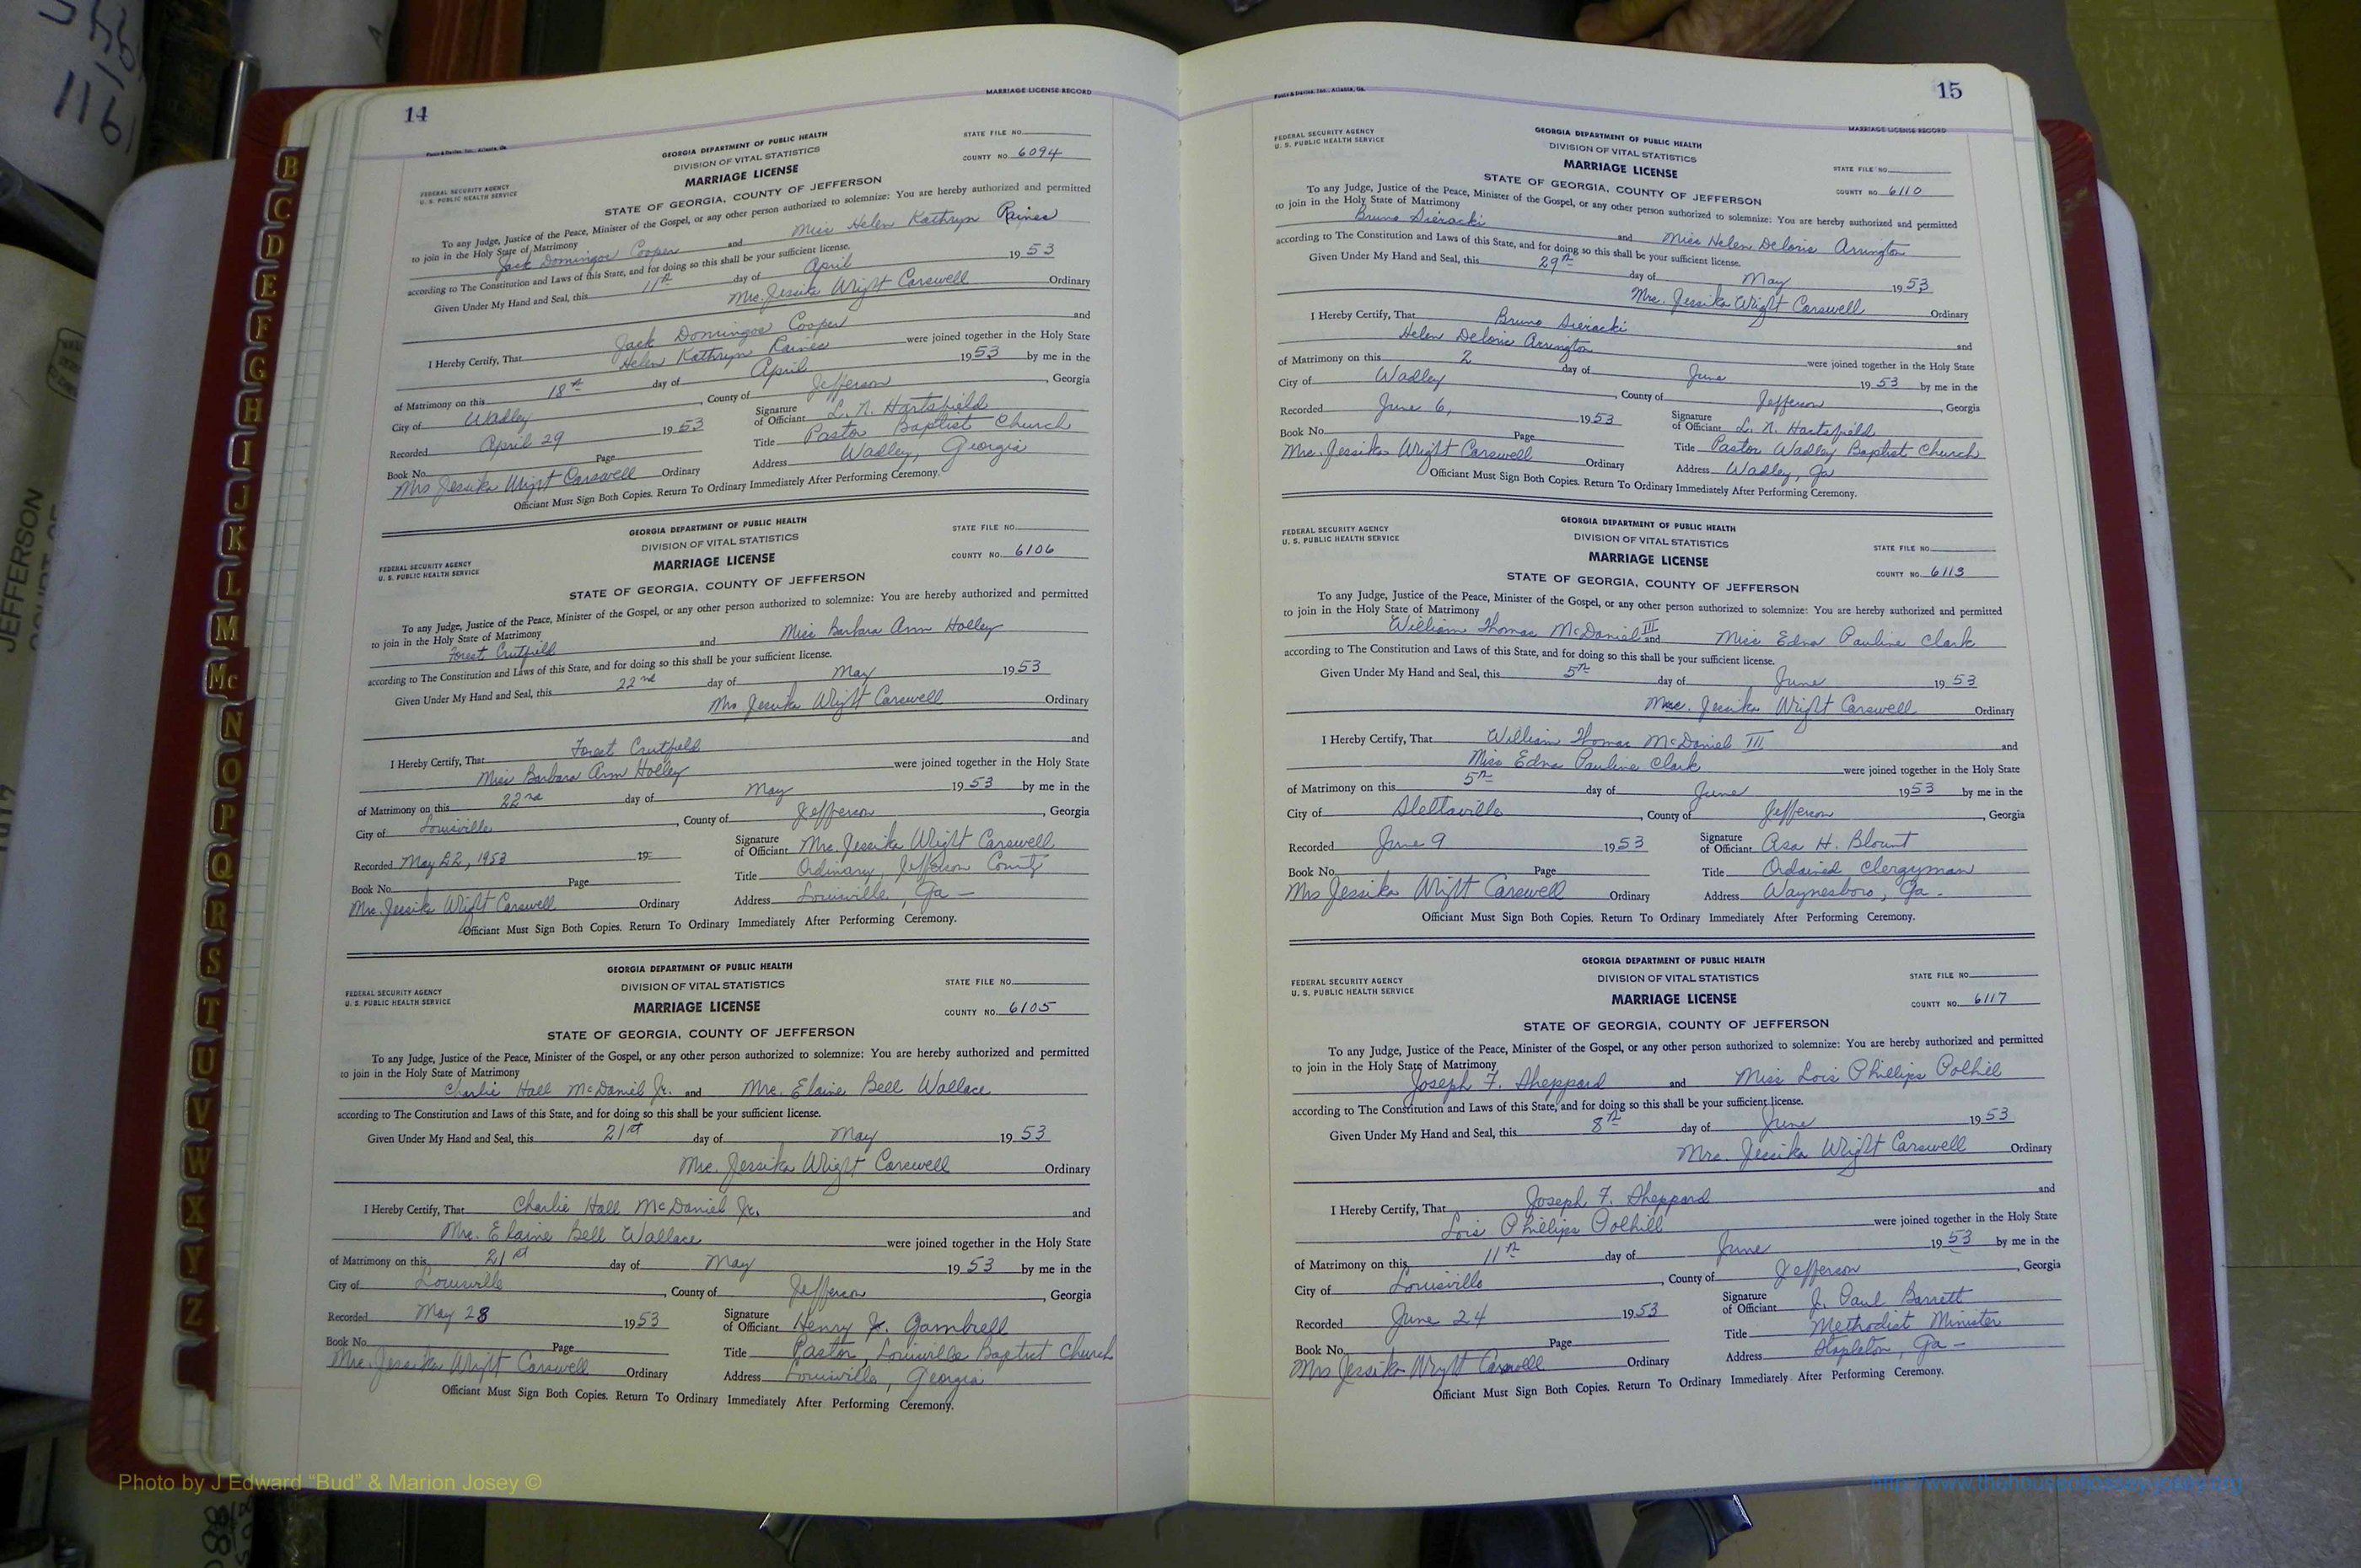 14
MARRIAGE LICENSE RECORD
Foote & Davies, Inc., Atlanta, Ga.
GEORGIA DEPARTMENT OF PUBLIC HEALTH
DIVISION OF VITAL STATISTICS
MARRIAGE LICENSE
STATE FILE NO.
COUNTY NO. 6094
FEDERAL SECURITY AGENCY
U. S. PUBLIC HEALTH SERVICE
STATE OF GEORGIA, COUNTY OF JEFFERSON
To any Judge, Justice of the Peace, Minister of the Gospel, or any other person authorized to solemnize: You are hereby authorized and permitted
to join in the Holy State of Matrimony
Jack Domingos Cooper and Miss Helen Kathryn Raines
according to The Constitution and Laws of this State, and for doing so this shall be your sufficient license.
Given Under My Hand and Seal, this 11th day of April 1953
Mrs. Jessika Wright Carswell Ordinary
I Hereby Certify, That Jack Domingos Cooper and
Helen Kathryn Raines were joined together in the Holy State
of Matrimony on this 18th day of April 1953 by me in the
City of Wadley, County of Jefferson, Georgia
Recorded April 29 1953
Signature of Officiant L. N. Hartsfield
Book No. Page
Title Pastor Baptist Church
Mrs Jessika Wright Carswell Ordinary
Address Wadley, Georgia
Officiant Must Sign Both Copies. Return To Ordinary Immediately After Performing Ceremony.
GEORGIA DEPARTMENT OF PUBLIC HEALTH
DIVISION OF VITAL STATISTICS
MARRIAGE LICENSE
STATE FILE NO.
COUNTY NO. 6106
FEDERAL SECURITY AGENCY
U. S. PUBLIC HEALTH SERVICE
STATE OF GEORGIA, COUNTY OF JEFFERSON
To any Judge, Justice of the Peace, Minister of the Gospel, or any other person authorized to solemnize: You are hereby authorized and permitted
to join in the Holy State of Matrimony
Forest Crutfield and Miss Barbara Ann Holley
according to The Constitution and Laws of this State, and for doing so this shall be your sufficient license.
Given Under My Hand and Seal, this 22nd day of May 1953
Mrs Jessika Wright Carswell Ordinary
I Hereby Certify, That Forest Crutfield and
Miss Barbara Ann Holley were joined together in the Holy State
of Matrimony on this 22nd day of May 1953 by me in the
City of Louisville, County of Jefferson, Georgia
Recorded May 22, 1953 19
Signature of Officiant Mrs. Jessika Wright Carswell
Book No. Page
Title Ordinary, Jefferson County
Mrs. Jessika Wright Carswell Ordinary
Address Louisville, Ga -
Officiant Must Sign Both Copies. Return To Ordinary Immediately After Performing Ceremony.
GEORGIA DEPARTMENT OF PUBLIC HEALTH
DIVISION OF VITAL STATISTICS
MARRIAGE LICENSE
STATE FILE NO.
COUNTY NO. 6105
FEDERAL SECURITY AGENCY
U. S. PUBLIC HEALTH SERVICE
STATE OF GEORGIA, COUNTY OF JEFFERSON
To any Judge, Justice of the Peace, Minister of the Gospel, or any other person authorized to solemnize: You are hereby authorized and permitted
to join in the Holy State of Matrimony
Charlie Hall McDaniel Jr. and Mrs. Elaine Bell Wallace
according to The Constitution and Laws of this State, and for doing so this shall be your sufficient license.
Given Under My Hand and Seal, this 21st day of May 1953
Mrs. Jessika Wright Carswell Ordinary
I Hereby Certify, That Charlie Hall McDaniel Jr. and
Mrs. Elaine Bell Wallace were joined together in the Holy State
of Matrimony on this 21st day of May 1953 by me in the
City of Louisville, County of Jefferson, Georgia
Recorded May 28 1953
Signature of Officiant Henry J. Gambrell
Book No. Page
Title Pastor, Louisville Baptist Church
Mrs. Jessika Wright Carswell Ordinary
Address Louisville, Georgia
Officiant Must Sign Both Copies. Return To Ordinary Immediately After Performing Ceremony.
15
Foote & Davies, Inc., Atlanta, Ga.
MARRIAGE LICENSE RECORD
FEDERAL SECURITY AGENCY
U. S. PUBLIC HEALTH SERVICE
GEORGIA DEPARTMENT OF PUBLIC HEALTH
DIVISION OF VITAL STATISTICS
MARRIAGE LICENSE
STATE FILE NO.
COUNTY NO. 6110
STATE OF GEORGIA, COUNTY OF JEFFERSON
To any Judge, Justice of the Peace, Minister of the Gospel, or any other person authorized to solemnize: You are hereby authorized and permitted
to join in the Holy State of Matrimony
Bruno Sieracki and Miss Helen Deloris Arrington
according to The Constitution and Laws of this State, and for doing so this shall be your sufficient license.
Given Under My Hand and Seal, this 29th day of May 1953
Mrs. Jessika Wright Carswell Ordinary
I Hereby Certify, That Bruno Sieracki and
Helen Deloris Arrington were joined together in the Holy State
of Matrimony on this 2 day of June 1953 by me in the
City of Wadley, County of Jefferson, Georgia
Recorded June 6, 1953
Signature of Officiant L. N. Hartsfield
Book No. Page
Title Pastor Wadley Baptist Church
Mrs. Jessika Wright Carswell Ordinary
Address Wadley, Ga
Officiant Must Sign Both Copies. Return To Ordinary Immediately After Performing Ceremony.
FEDERAL SECURITY AGENCY
U. S. PUBLIC HEALTH SERVICE
GEORGIA DEPARTMENT OF PUBLIC HEALTH
DIVISION OF VITAL STATISTICS
MARRIAGE LICENSE
STATE FILE NO.
COUNTY NO. 6113
STATE OF GEORGIA, COUNTY OF JEFFERSON
To any Judge, Justice of the Peace, Minister of the Gospel, or any other person authorized to solemnize: You are hereby authorized and permitted
to join in the Holy State of Matrimony
William Thomas McDaniel III and Miss Edna Pauline Clark
according to The Constitution and Laws of this State, and for doing so this shall be your sufficient license.
Given Under My Hand and Seal, this 5th day of June 1953
Mrs. Jessika Wright Carswell Ordinary
I Hereby Certify, That William Thomas McDaniel III and
Miss Edna Pauline Clark were joined together in the Holy State
of Matrimony on this 5th day of June 1953 by me in the
City of Stellaville, County of Jefferson, Georgia
Recorded June 9 1953
Signature of Officiant Asa H. Blount
Book No. Page
Title Ordained Clergyman
Mrs Jessika Wright Carswell Ordinary
Address Waynesboro, Ga -
Officiant Must Sign Both Copies. Return To Ordinary Immediately After Performing Ceremony.
FEDERAL SECURITY AGENCY
U. S. PUBLIC HEALTH SERVICE
GEORGIA DEPARTMENT OF PUBLIC HEALTH
DIVISION OF VITAL STATISTICS
MARRIAGE LICENSE
STATE FILE NO.
COUNTY NO. 6117
STATE OF GEORGIA, COUNTY OF JEFFERSON
To any Judge, Justice of the Peace, Minister of the Gospel, or any other person authorized to solemnize: You are hereby authorized and permitted
to join in the Holy State of Matrimony
Joseph F. Sheppard and Miss Lois Phillips Polhill
according to The Constitution and Laws of this State, and for doing so this shall be your sufficient license.
Given Under My Hand and Seal, this 8th day of June 1953
Mrs. Jessika Wright Carswell Ordinary
I Hereby Certify, That Joseph F. Sheppard and
Lois Phillips Polhill were joined together in the Holy State
of Matrimony on this 11th day of June 1953 by me in the
City of Louisville, County of Jefferson, Georgia
Recorded June 24 1953
Signature of Officiant J. Paul Barrett
Book No. Page
Title Methodist Minister
Mrs Jessika Wright Carswell Ordinary
Address Stapleton, Ga -
Officiant Must Sign Both Copies. Return To Ordinary Immediately After Performing Ceremony.
B
C
D
E
F
G
H
I
J
K
L
M
Mc
N
O
P
Q
R
S
T
U
V
W
X
Y
Z
JEFFERSON
Photo by J Edward “Bud” & Marion Josey ©